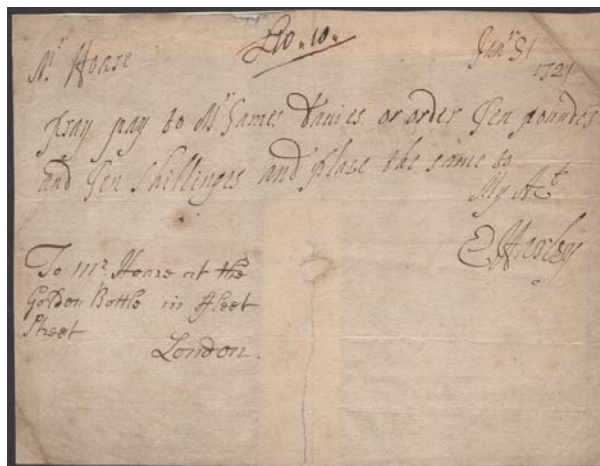 £10 " 10 "
Janry 31
1721
Mr Hoare
pray pay to Mr James Davies or order Ten poundes
and Ten Shillinges and place the same to
My Act
E Harley
To Mr. Hoare at the
Golden Bottle in Fleet
Street
London.